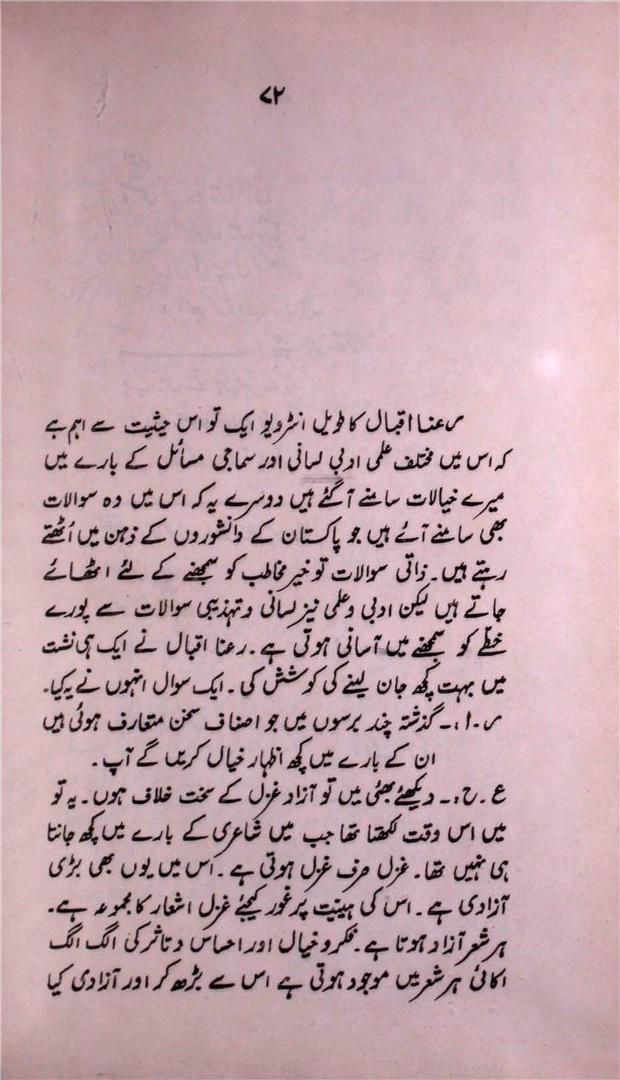 ۷۲
رعنا اقبال کا طویل انٹرویو ایک تو اس حیثیت سے اہم ہے
کہ اس میں مختلف علمی ادبی لسانی اور سماجی مسائل کے بارے میں
میرے خیالات سامنے آگئے ہیں دوسرے یہ کہ اس میں وہ سوالات
بھی سامنے آئے ہیں جو پاکستان کے دانشوروں کے ذہن میں اُٹھتے
رہتے ہیں۔ ذاتی سوالات تو خیر مخاطب کو سمجھنے کے لئے اٹھائے
جاتے ہیں لیکن ادبی و علمی نیز لسانی و تہذیبی سوالات سے پورے
خطّے کو سمجھنے میں آسانی ہوتی ہے۔ رعنا اقبال نے ایک ہی نشت
میں بہت کچھ جان لینے کی کوشش کی۔ ایک سوال انہوں نے یہ کیا۔
ر۔ا،۔ گذشتہ چند برسوں میں جو اصناف سخن متعارف ہوئی ہیں
ان کے بارے میں کچھ اظہار خیال کریں گے آپ۔
ع۔ح،۔ دیکھئے بھئی میں تو آزاد غزل کے سخت خلاف ہوں۔ یہ تو
میں اس وقت لکھتا تھا جب میں شاعری کے بارے میں کچھ جانتا
ہی نہیں تھا۔ غزل صرف غزل ہوتی ہے۔ اس میں یوں بھی بڑی
آزادی ہے۔ اس کی ہیئیت پر غور کیجئے غزل اشعار کا مجموعہ ہے۔
ہر شعر آزاد ہوتا ہے۔ فکر و خیال اور احساس و تاثر کی الگ الگ
اکائی ہر شعر میں موجود ہوتی ہے اس سے بڑھ کر اور آزادی کیا